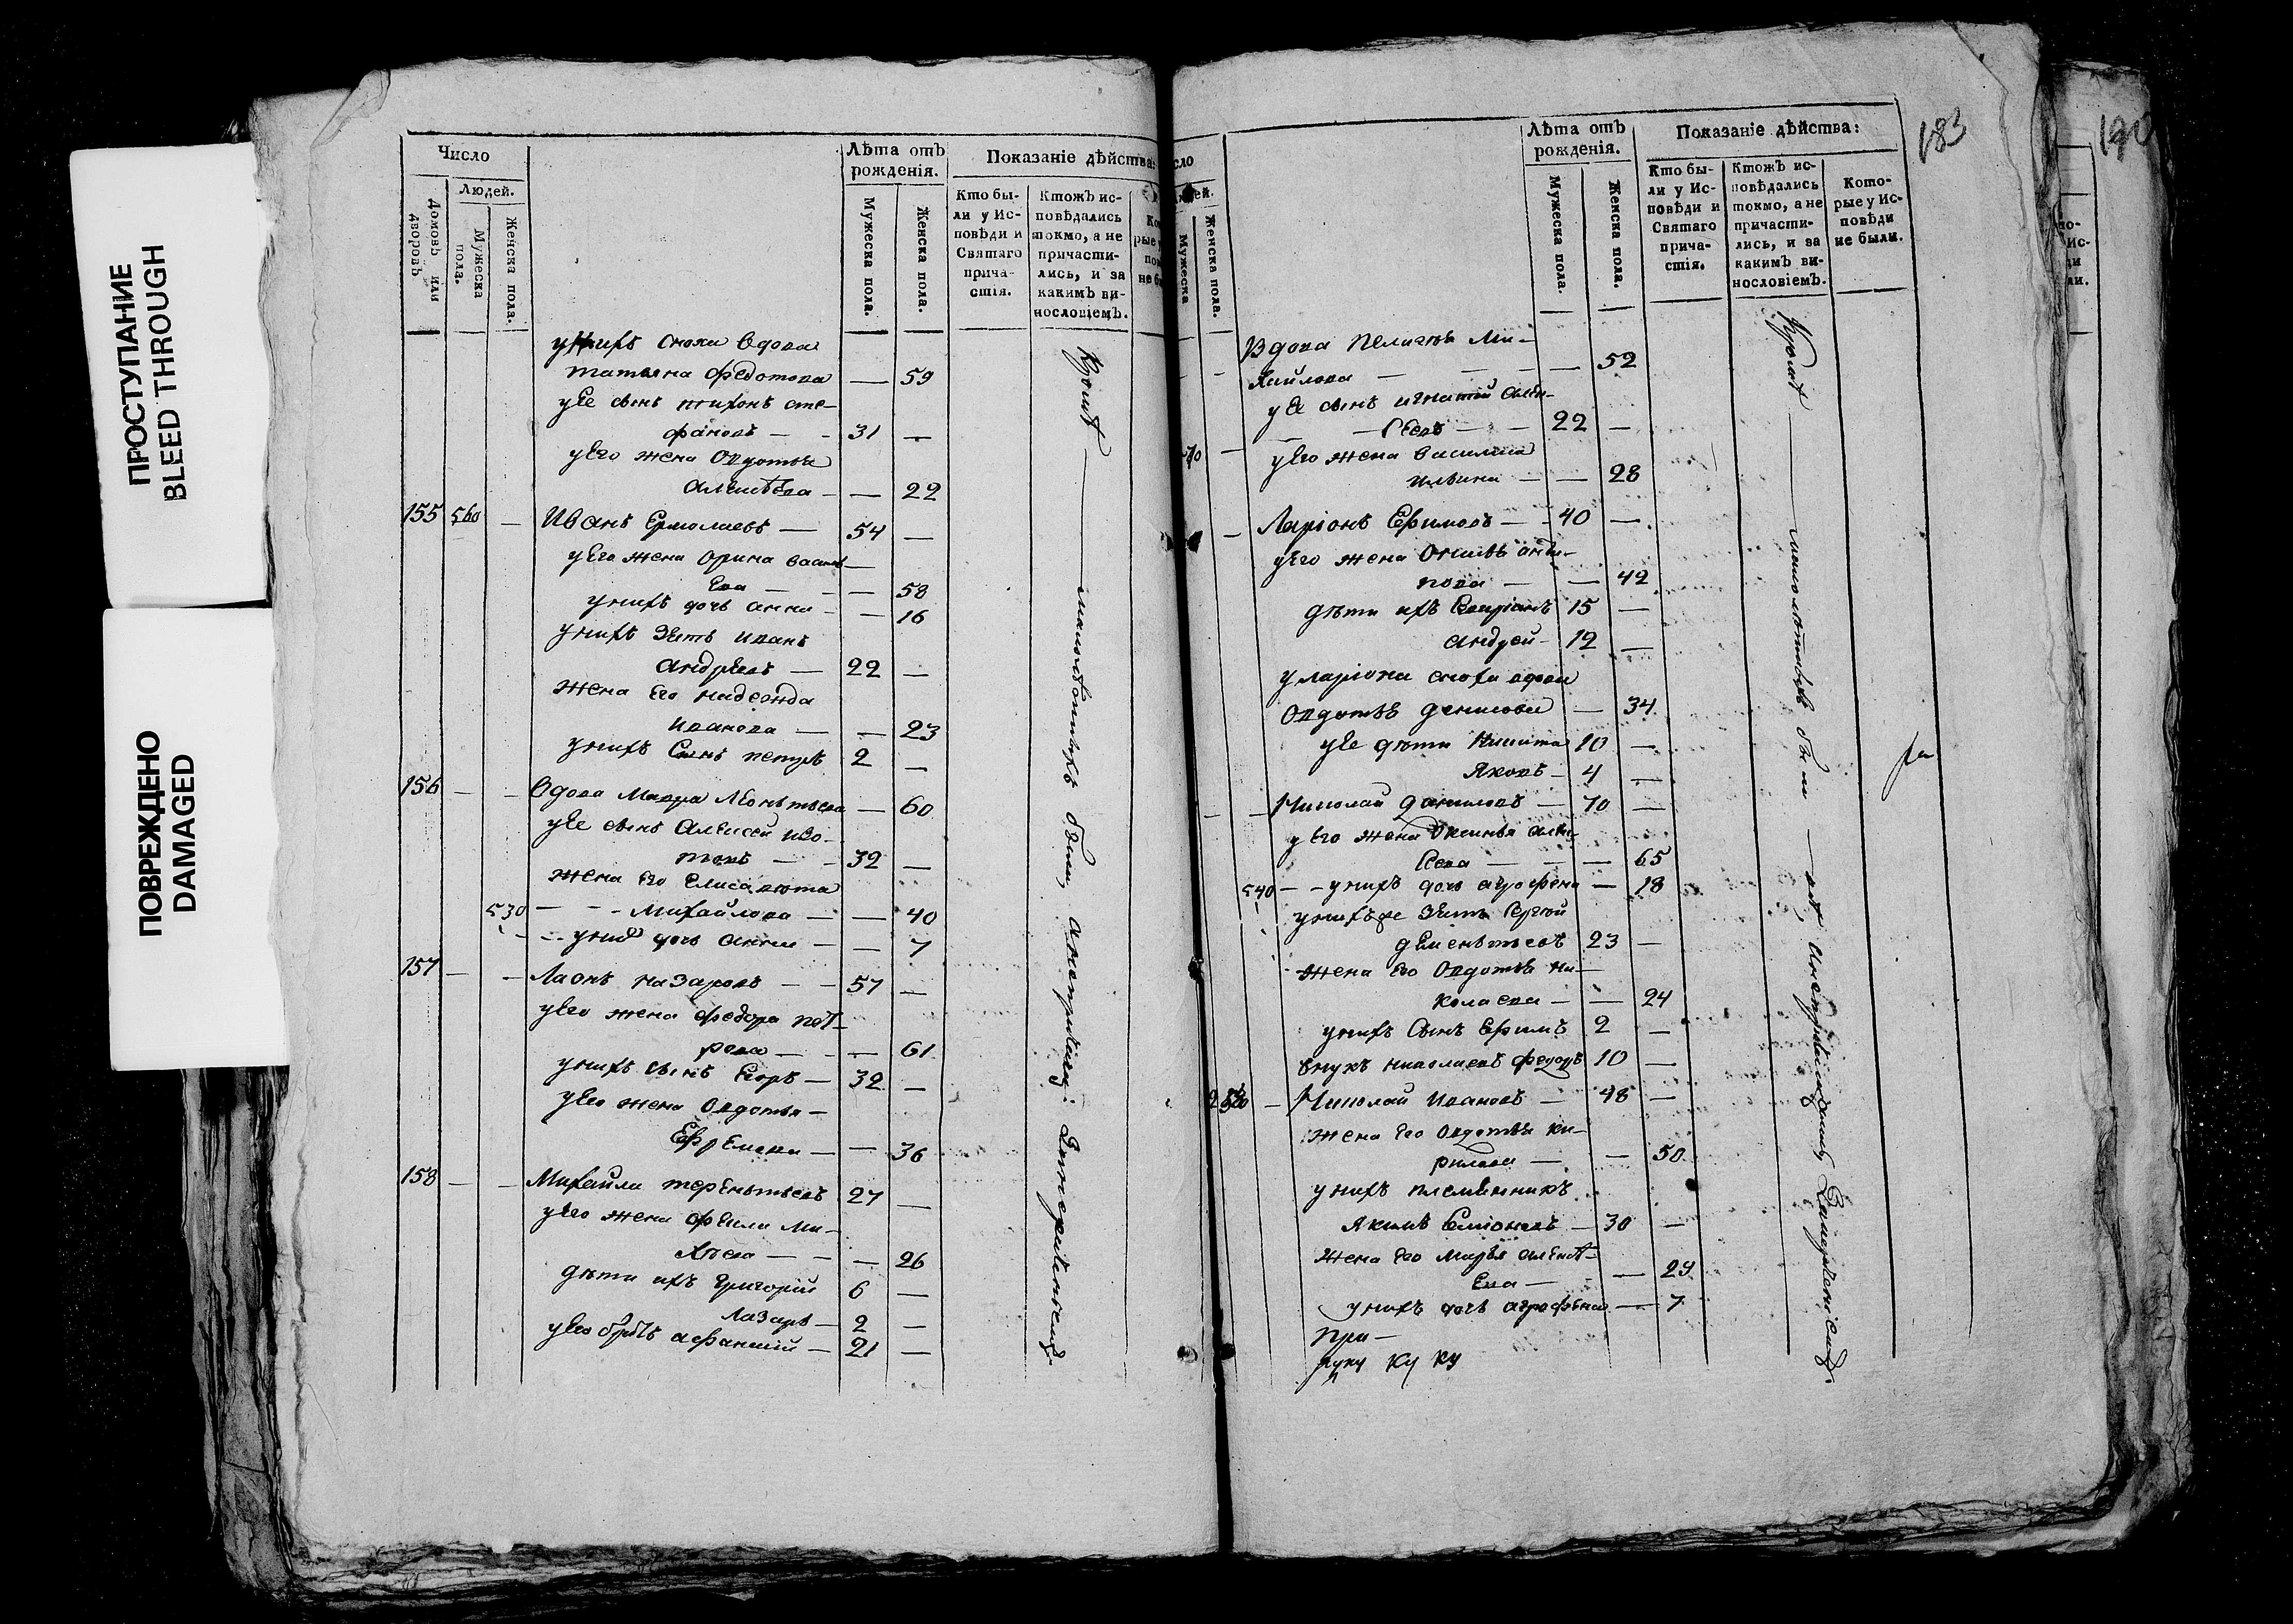 ПРОСТУПАНИЕ
BLEED THROUGH
ПОВРЕЖДЕНО
DAMAGED
Число
Людей.
Домовъ или дворовъ
Мужеска пола.
Женска пола.
Лѣта отъ рожденія.
Мужеска пола.
Женска пола.
Показаніе дѣйства:
Кто бы-
ли у Ис-
повѣди и
Святаго
прича-
стія.
Ктожъ ис-
повѣдались
токмо, а не
причасти-
лись, и за
какимъ ви-
нословіемъ.
у нихъ сноха вдова
татьяна федотова — 59
у Ее сынъ тихонъ сте-
фановъ — 31 —
у Его жена Овдотья
Алексѣева — — 22
155 560 — Иванъ Ермолаевъ — 54 —
у Его жена Орина васил-
Ева — — 58
у нихъ дочь анна — — 16
у нихъ Зять иванъ
Андреевъ — 22 —
жена Его надежда
иванова — — 23
у нихъ Сынъ петръ 2 —
156 — — Вдова Мавра Леонтьева — 60
у Ее сынъ Алексей изо-
товъ — 32 —
жена Его Елисавета
530 — Михайлова — — 40
у них дочь Анна — — 7
157 — — Лаонъ назаровъ — 57 —
у Его жена федора пет-
рова — — 61
у нихъ сынъ Егоръ — 32 —
у Его жена Овдотья —
Ефремова — — 36
158 — — Михайла терентьевъ 27 —
у Его жена фекла ми-
хѣева — — 26
дѣти ихъ Григорій 6 —
Лазарь — 2 —
у Его братъ афанасій — 21 —
Кромѣ — малолѣтнихъ были
183
190
Людей.
Мужеска
Женска пола.
Лѣта отъ рожденія.
Мужеска пола.
Женска пола.
Показаніе дѣйства:
Кто бы-
ли у Ис-
повѣди и
Святаго
прича-
стія.
Ктожъ ис-
повѣдались
токмо, а не
причасти-
лись, и за
какимъ ви-
нословіемъ.
Кото-
рые у Ис-
повѣди
не были.
Вдова Пелагея Ми-
хайлова — — 52
у Ее сынъ игнатей алек-
сеевъ — 22 —
у Его жена василиса
ильина — — 28
Ларіонъ Ефимовъ — 40 —
у Его жена Оксинья анти-
пова — — 42
дѣти ихъ 15 —
андрей — 12 —
у ларіона сноха вдова
Овдотья денисова — 34
у Ее дѣти Никита 10 —
Яковъ — 4 —
Николай даниловъ — 70 —
у Его жена Оксинья алек-
сеева — — 65
540 — у нихъ дочь аграфена — 18
у нихъ же Зять Сергей
дементьевъ 23 —
жена Его Овдотья ни-
колаева — — 24
у нихъ Сынъ Ефимъ 2 —
внукъ николаевъ федоръ 10 —
Николай Ивановъ — 48 —
жена Его Овдотья ки-
рилова — — 50
у нихъ племянникъ
Якимъ Семіоновъ — 30 —
жена Его Марья алексѣ-
Ева — — 29
у нихъ дочь аграфена — 7
при—
руку ку ку
Кромѣ — малолѣтнихъ были